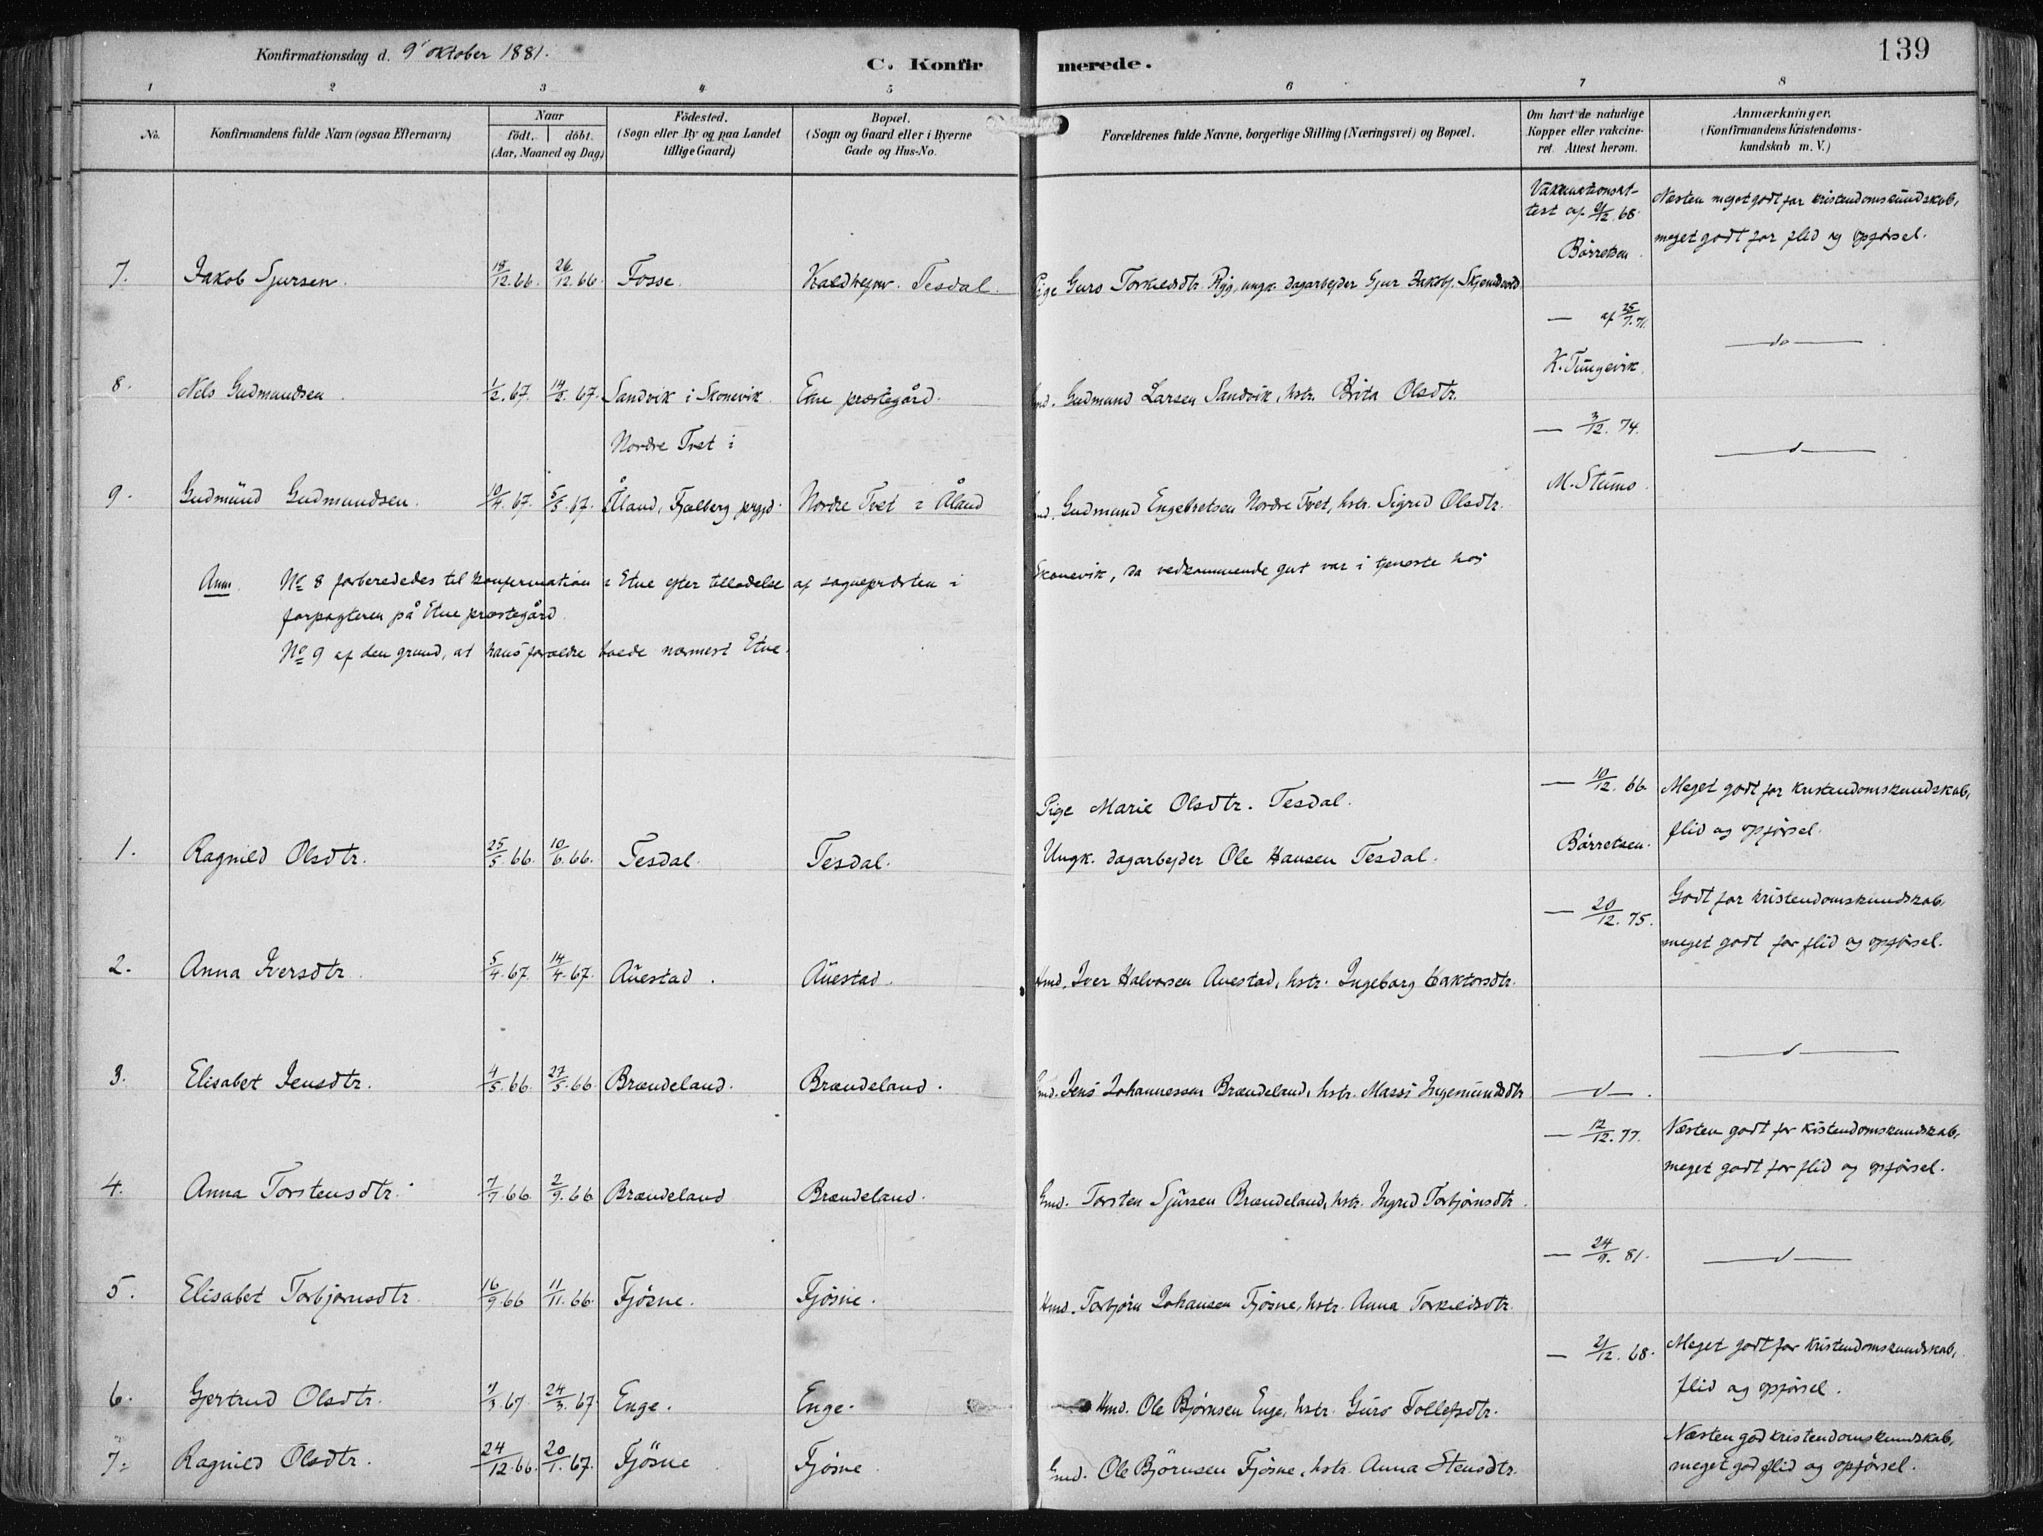 Konfirmationsdag d. 9' oktober 1881.
C. Konfirmerede.
139
1 2 3 4 5 6 7 8
No.
Konfirmandens fulde Navn (ogsaa Efternavn)
Naar
födt. döbt.
(Aar, Maaned og Dag)
Födested.
(Sogn eller By og paa Landet
tillige Gaard)
Bopæl.
(Sogn og Gaard eller i Byerne
Gade og Hus-No.
Forældrenes fulde Navne, borgerlige Stilling (Næringsvei) og Bopæl.
Om havt de naturlige
Kopper eller vakcine-
ret. Attest herom.
Anmærkninger.
(Konfirmandens Kristendoms-
kundskab m. V.)
Vakcinationsat-
test af 21/12.68.
Børretsen
Næsten meget godt for kristendomskundskab,
meget godt for flid og opførsel.
7. Jakob Sjursen. 18/12.66. 26/12.66. Fosse. Tesdal. Pige Guro Torkildsdtr. Rygg, ungk. dagarbejder Sjur Jakobs.
— af 25/7.71.
K. Tungevik.
— do —
8. Nels Gudmundsen. 1/2.67. 14/2.67. Sandvik i Skonevik. Etne præstegård. Gmd. Gudmund Larsen Sandvik, hstr. Brita Olsdtr.
— 3/12.74.
M. Stumo.
— d —
Nordre Tvet i
9. Gudmund Gudmundsen. 10/4.67. 5/5.67. Åland, Fjælberg prgjd. Nordre Tvet i Åland Gmd. Gudmund Engebretsen Nordre Tvet, hstr. Sigrid Olsdtr.
Anm. No 8 forberededes til konfirmation i Etne efter tilladelse af sognepræsten i Skonevik, da vedkommende gut var i tjeneste hos
forpagteren på Etne præstegård.
No 9 af den grund, at hans forældre boede nærmest Etne.
— 10/12.66.
Børretsen.
Meget godt for kristendomskundskab,
flid og opførsel.
Pige Marie Olsdtr. Tesdal.
1. Ragnild Olsdtr. 25/5.66. 10/6.66. Tesdal. Tesdal. Ungk. dagarbejder Ole Hansen Tesdal.
— 20/12.75.
Godt for kristendomskundskab,
meget godt for flid og opførsel.
2. Anna Iversdtr. 5/4.67. 14/4.67. Auestad. Auestad. Hmd. Iver Halvorsen Auestad, hstr. Ingeborg Haktorsdtr.
— d —
3. Elisabet Jensdtr. 4/5.66. 27/5.66. Brændeland. Brændeland. Gmd. Jens Johannessen Brændeland, hstr. Massi Ingemundsdtr — d — .
— 12/12.77.
Næsten godt for kristendomskundskab,
meget godt for flid og opførsel.
4. Anna Torstensdtr. 7/7.66. 2/9.66. Brændeland Brændeland. Gmd. Torsten Sjursen Brændeland, hstr. Ingrid Torbjørnsdtr.
— 24/9.81.
— d —
5. Elisabet Torbjørnsdtr. 16/9.66 11/11.66. Fjøsne. Fjøsne. Hmd. Torbjørn Johansen Fjøsne, hstr. Anna Torkildsdtr.
— 21/12.68.
Meget godt for kristendomskundskab,
flid og opførsel.
6. Gjertrud Olsdtr. 24/3.67. Enge. Enge. Hmd. Ole Bjørnsen Enge, hstr. Guro Tollefsdtr.
Næsten god kristendomskundskab,
meget god flid og opførsel.
7. Ragnild Olsdtr. 24/12.66. 20/1.67. Fjøsne Fjøsne. Gmd. Ole Bjørnsen Fjøsne, hstr. Anna Stensdtr.